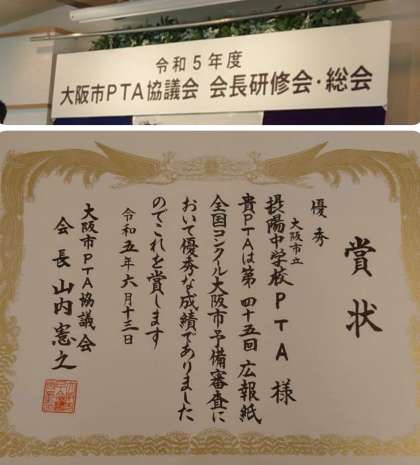 令和5年度
大阪市PTA協議会 会長研修会・総会
賞状
優秀
大阪市立
摂陽中学校PTA様
貴PTAは第四十五回広報紙
全国コンクール大阪市予備審査に
おいて優秀な成績でありました
のでこれを賞します
令和五年六月十三日
大阪市PTA協議会
会長 山内憲之